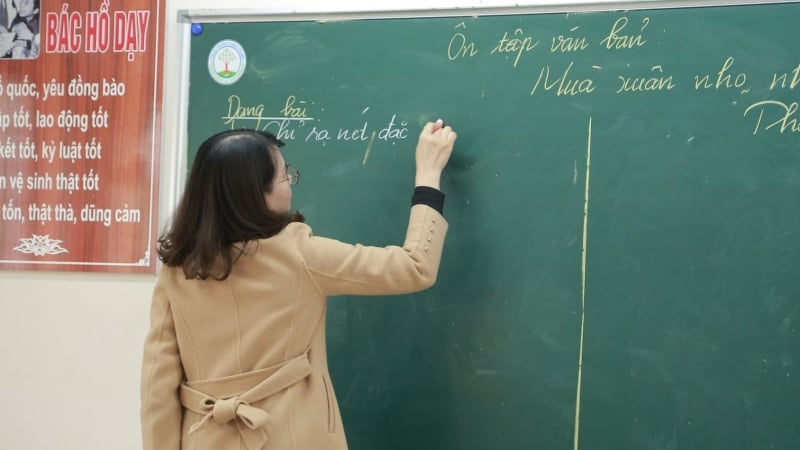 BÁC HỒ DẠY
quốc, yêu đồng bào
tốt, lao động tốt
kết tốt, kỷ luật tốt
vệ sinh thật tốt
tốn, thật thà, dũng cảm
Ôn tập văn bản
Mùa xuân nho nh
Dạng bài
Chỉ ra nét đặc